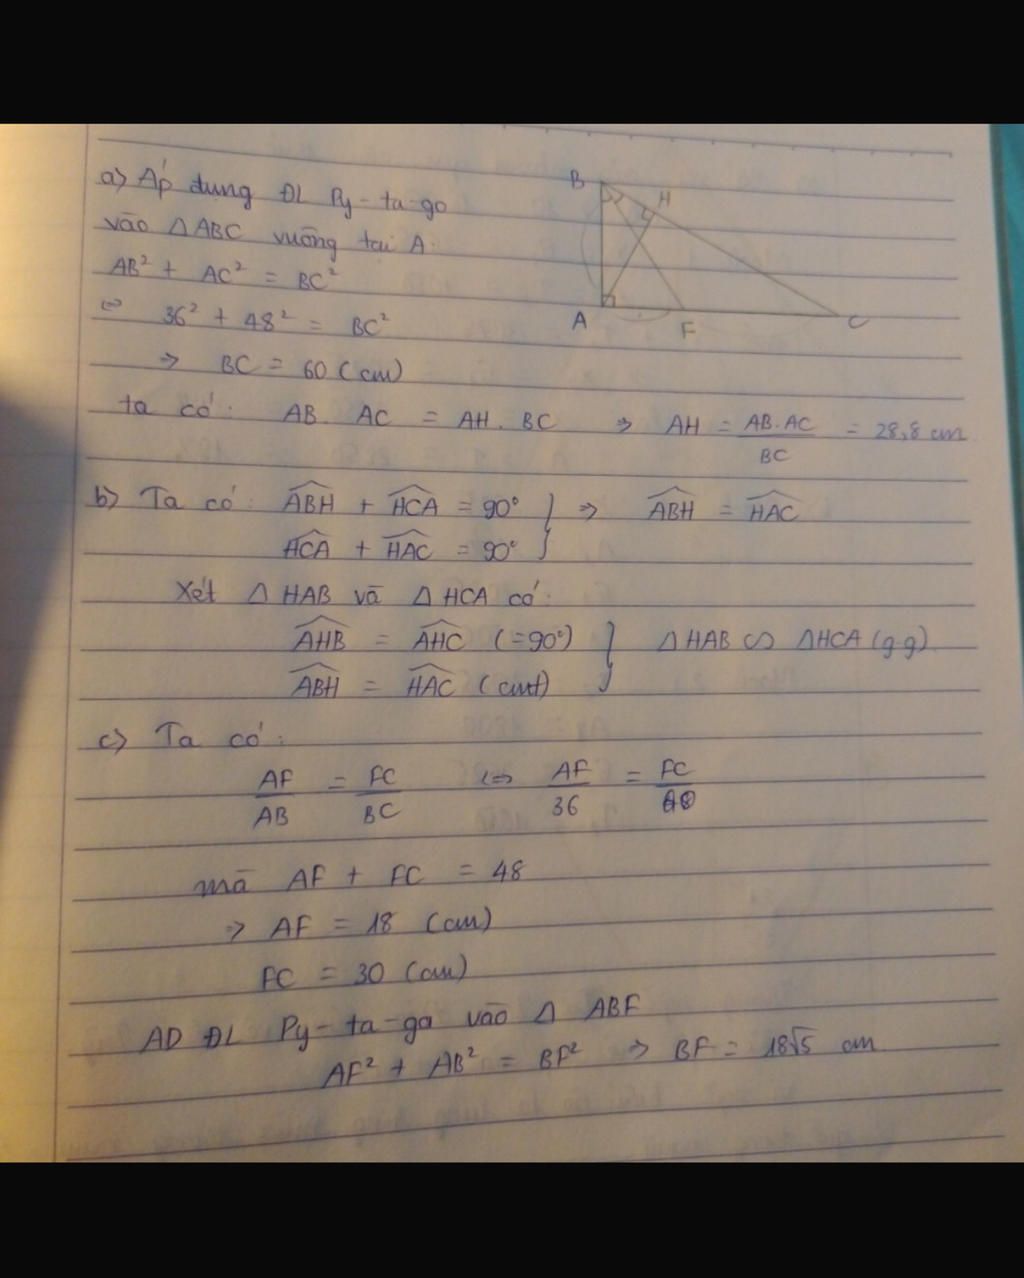 a) Áp dụng ĐL Py-ta-go
vào △ABC vuông tại A:
AB² + AC² = BC²
⇔ 36² + 48² = BC²
⇒ BC = 60 (cm)
B
H
A
F
C
ta có: AB. AC = AH. BC ⇒ AH = AB.AC / BC = 28,8 cm
b) Ta có: ABH + HCA = 90° } ⇒ ABH = HAC
HCA + HAC = 90°
Xét △HAB và △HCA có:
AHB = AHC (=90°) } △HAB ∽ △HCA (g.g)
ABH = HAC (cmt)
c) Ta có:
AF / AB = FC / BC ⇔ AF / 36 = FC / 60
mà AF + FC = 48
⇒ AF = 18 (cm)
FC = 30 (cm)
AD ĐL Py-ta-go vào △ ABF
AF² + AB² = BF² ⇒ BF = 18√5 cm